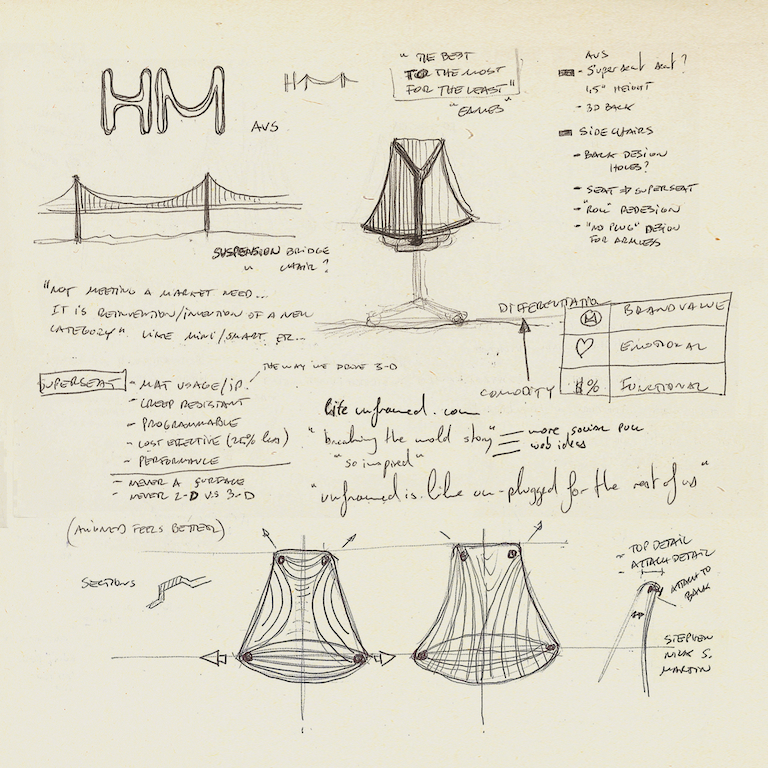 HM
AVS
HM
"THE BEST
FOR THE MOST
FOR THE LEAST"
"EAMES"
AVS
- Superseat seat?
1.5" HEIGHT
- 3D BACK
SIDE CHAIRS
- BACK DESIGN
HOLES?
- SEAT => SUPERSEAT
- REDESIGN
- "NO PLUG" DESIGN
FOR ARMLESS
SUSPENSION BRIDGE
" CHAIR?
"NOT MEETING A MARKET NEED...
IT IS REINVENTION/INVENTION OF A NEW
CATEGORY" LIKE MINI/SMART, ETC...
DIFFERENTIATIO
COMODITY
M BRAND VALUE
EMOTIONAL
$% FUNCTIONAL
THE WAY WE DRIVE 3-D
SUPERSEAT
- MAT USAGE/IP.
- CREEP RESISTANT
- PROGRAMMABLE
- COST EFFECTIVE (25% less)
- PERFORMANCE
- NEVER A SURFACE
- NEVER 2-D V.S 3-D
(ALIGNED FEELS BETTER)
life unframed.com
"breaking the mold story"
more social
web ideas
"so inspired"
"unframed is like un-plugged for the rest of us"
SECTIONS
- TOP DETAIL
- ATTACH DETAIL
ATTACH TO
BACK
STEPHEN
NICK S.
MARTIN